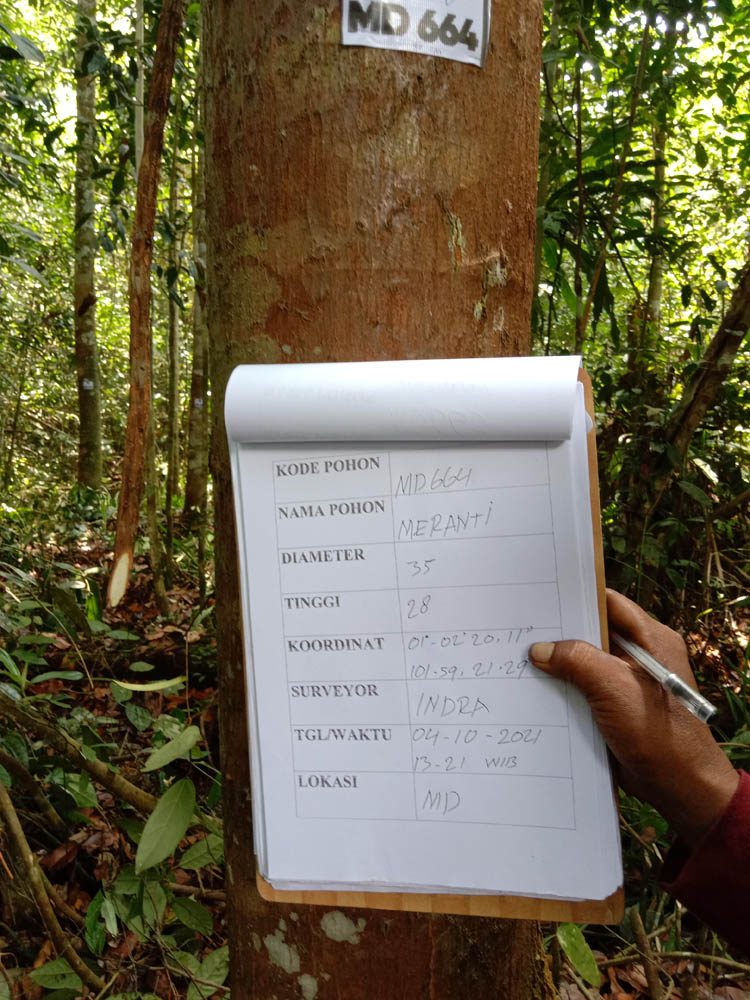 MD 664
KODE POHON MD664
NAMA POHON MERANTI
DIAMETER 35
TINGGI 28
KOORDINAT 01°-02' 20, 11"
101-59, 21-29
SURVEYOR INDRA
TGL/WAKTU 04-10-2021
13-21 WIB
LOKASI MD